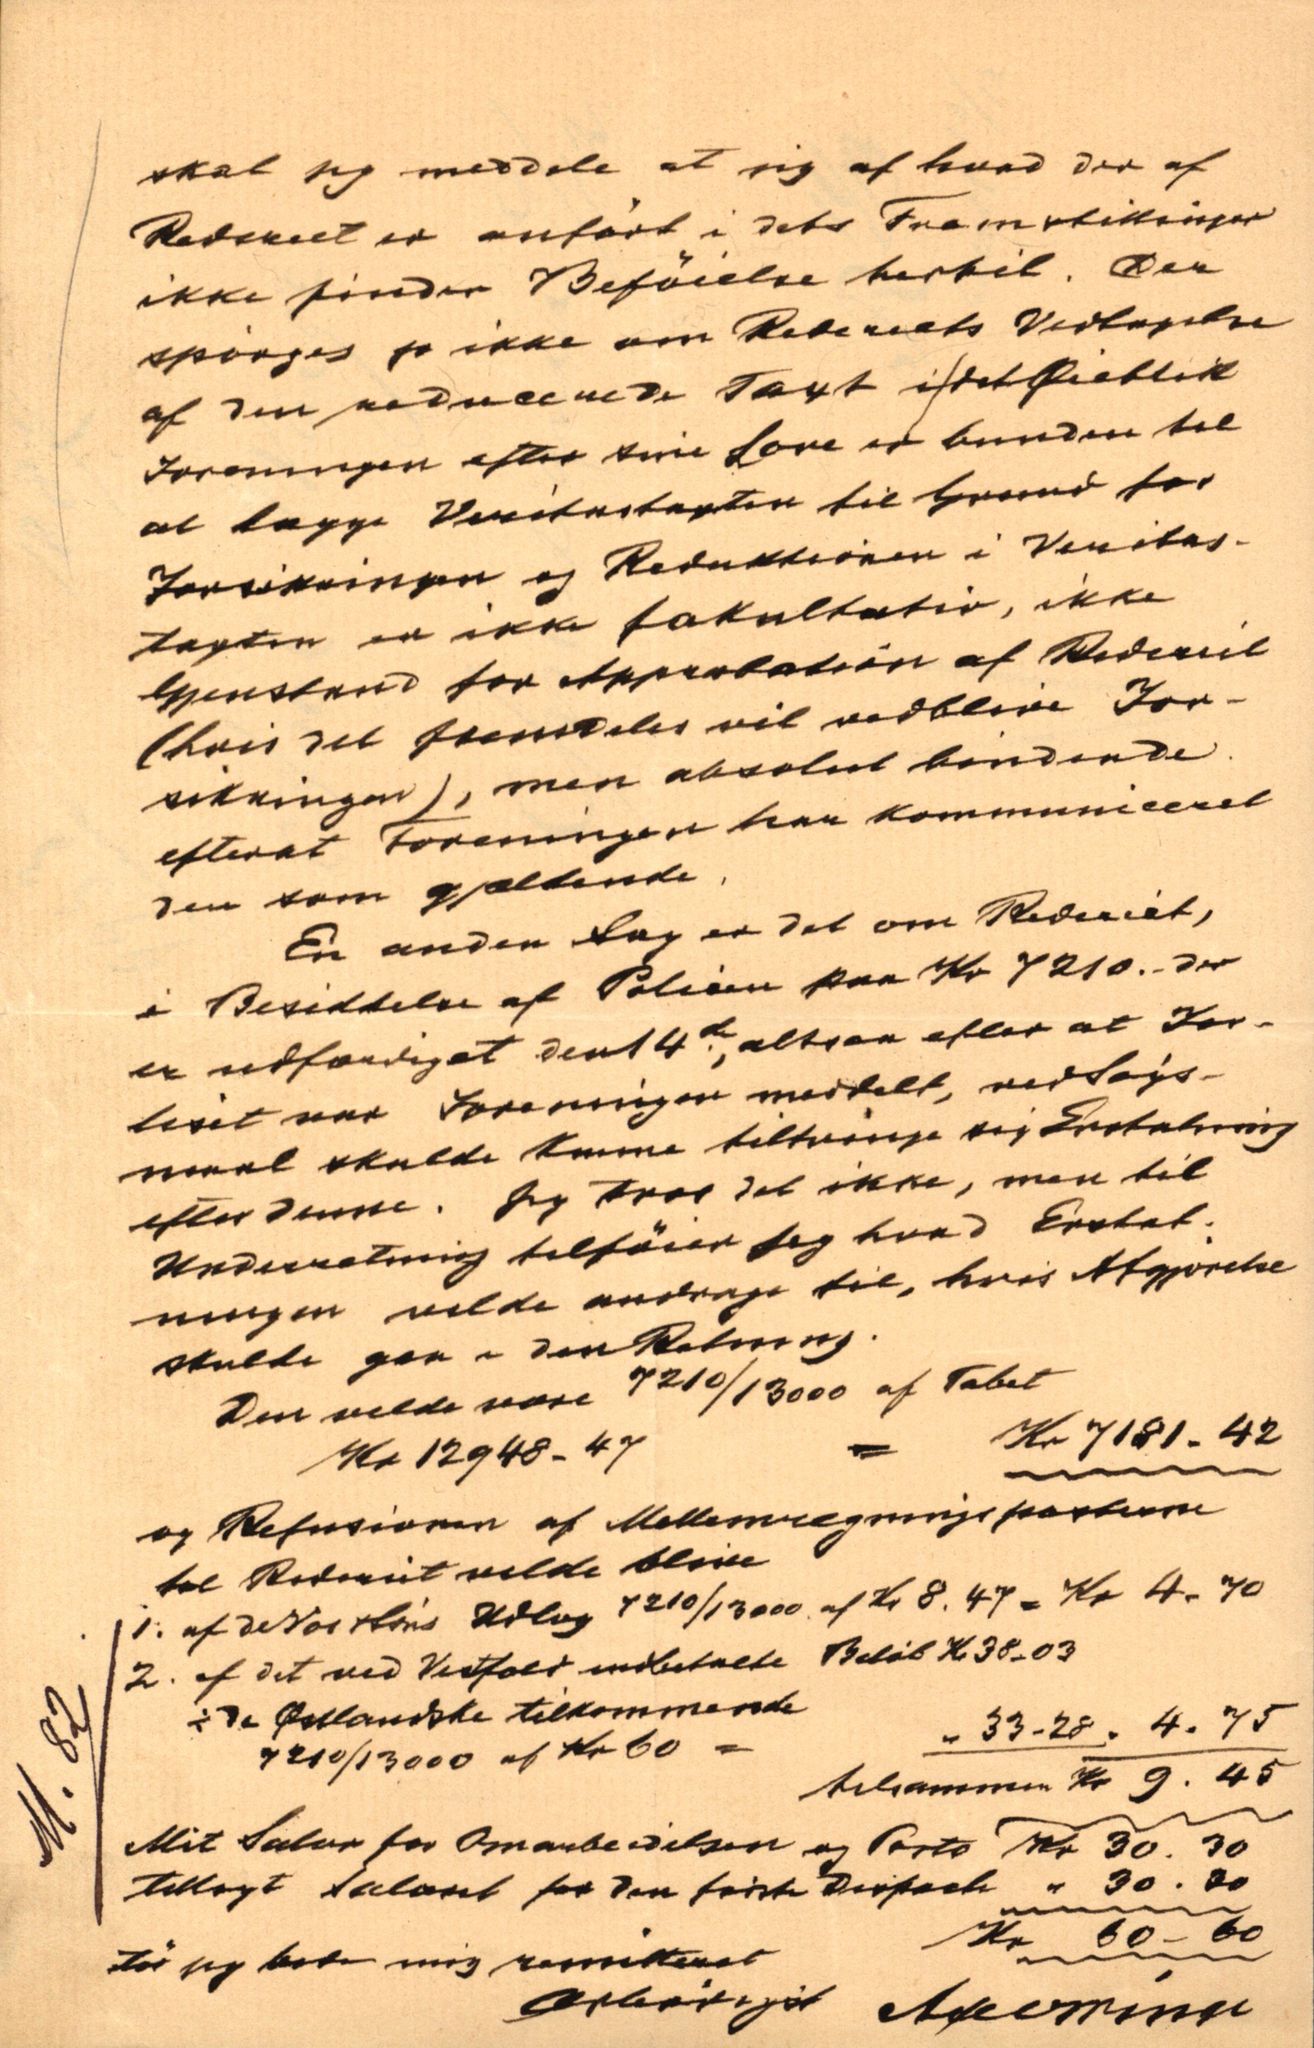 skal jeg meddele at jeg af hvad der af
Rederiet er anført i dets Fremstillinger
ikke finder Beføielse hertil. Der
spørges jo ikke om Rederiets Vedtagelse
af den reducerede Taxt i det Øieblik
Foreningen efter sine Love er bunden til
at lægge Veritastaxten til Grund for
Forsikringen og Reduktionen i Veritas-
taxten er ikke fakultativ, ikke
Gjenstand for Approbation af Rederiet
(hvis det fremdeles vil vedblive For-
sikringen), men absolut bindende
efterat Foreningen har kommuniceret
den som gjældende.
En anden Sag er det om Rederiet,
i Besiddelse af Policen paa Kr 7210.- der
er udfærdiget den 14d, altsaa efter at For-
liset var Foreningen meddelt, ved Søgs-
maal skulde kunne tiltvinge sig Erstatning
efter denne. Jeg tror det ikke, men til
Underretning tilføier jeg hvad Erstat-
ningen vilde andrage til, hvis Afgjørelse
skulde gaa i den Retning.
Den vilde være 7210/13000 af Tabet
Kr 12948-47 = Kr 7181-42
og Refusionen af Mellemregningsposterne
til Rederiet vilde blive
1. af de Vos & Søns Udlæg 7210/13000 af Kr 8.47 = Kr 4-70
2. af det ved Vestfold indbetalte Beløb Kr 38-03
÷ de Østlandske tilkommende
7210/13000 af Kr 60 = " 33-28. 4.75
tilsammen Kr 9.45
Mit Salær for Omarbeidelsen og Porto Kr 30.30
tillagt Salæret for den første Dispache " 30.30
Kr 60-60
tør jeg bede mig remitteret
Ærbødigst
M. 82